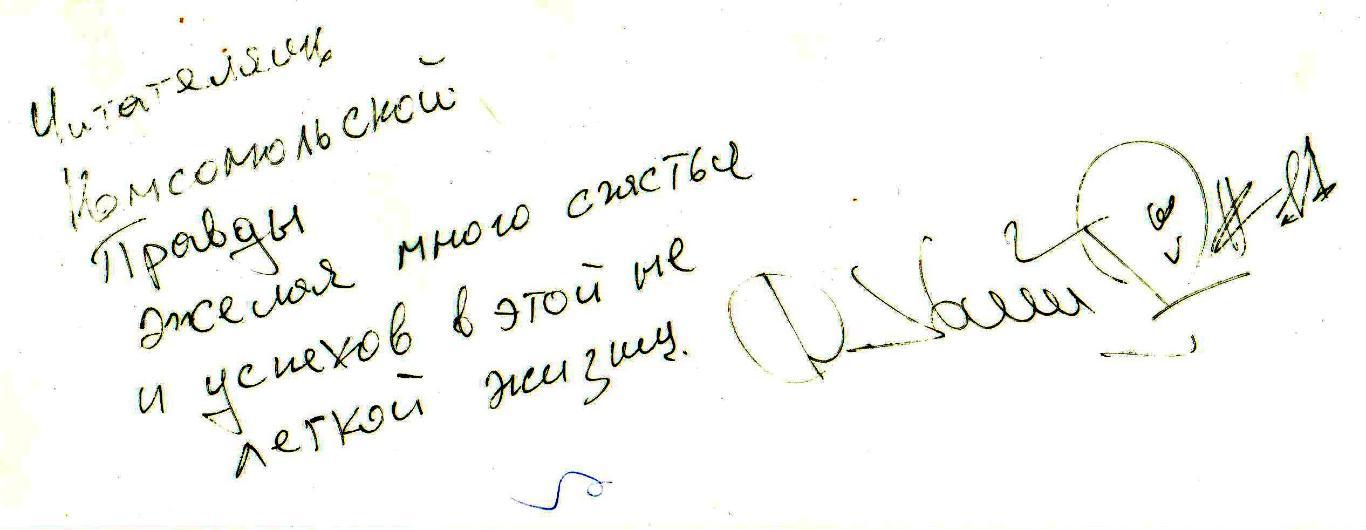 Читателям
Комсомольской
Правды
желаю много счастья
и успехов в этой не
легкой жизни.